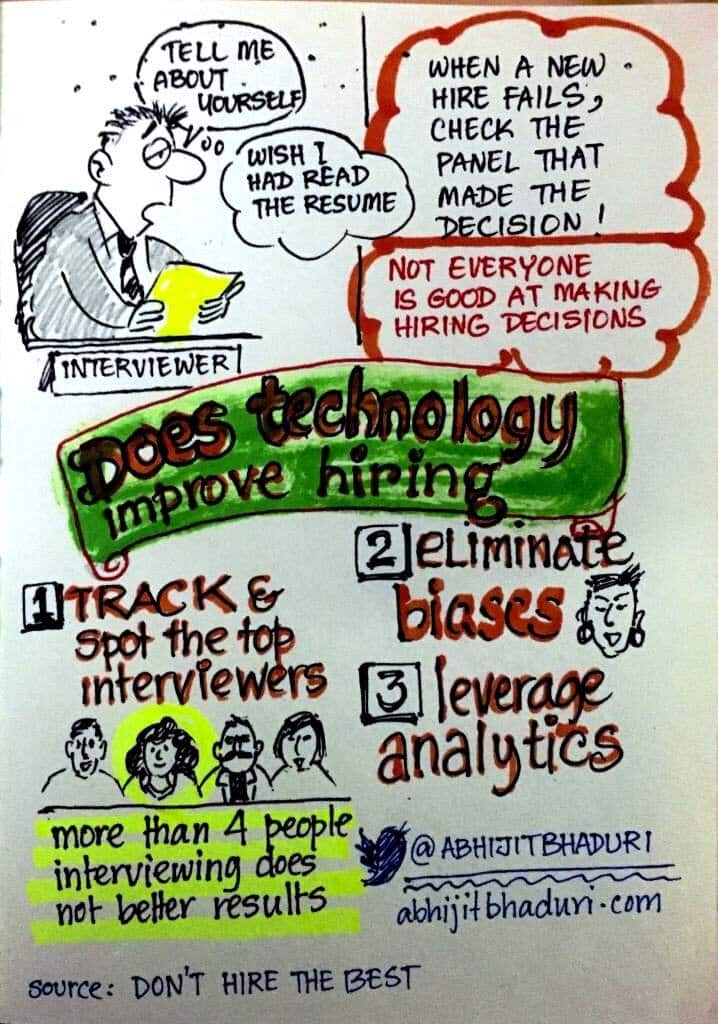 TELL ME
ABOUT
YOURSELF
WISH I
HAD READ
THE RESUME
INTERVIEWER
WHEN A NEW
HIRE FAILS,
CHECK THE
PANEL THAT
MADE THE
DECISION!
NOT EVERYONE
IS GOOD AT MAKING
HIRING DECISIONS
Does technology
improve hiring
1 TRACK &
spot the top
interviewers
more than 4 people
interviewing does
not better results
2 eliminate
biases
3 leverage
analytics
@ABHIJITBHADURI
abhijitbhaduri.com
source: DON'T HIRE THE BEST